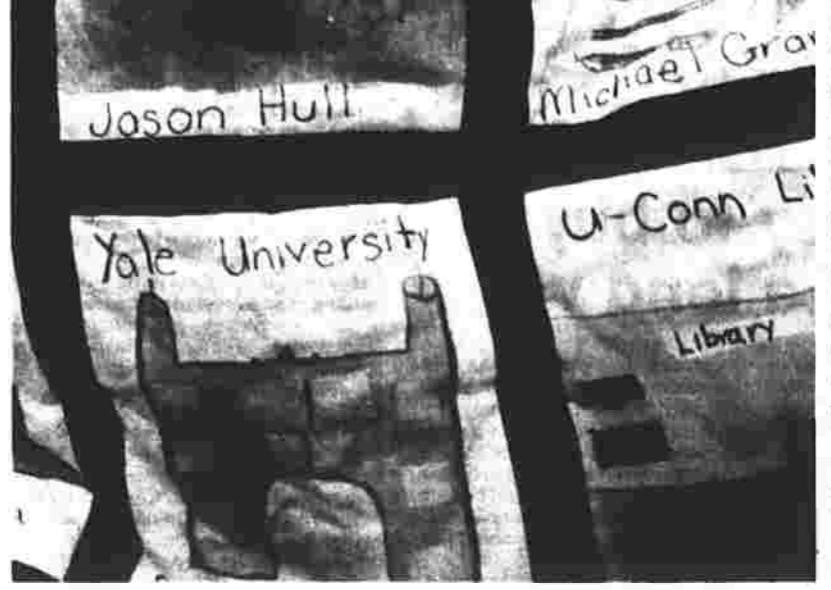 Jason Hull
Michael
Yale University
U-Conn
Library